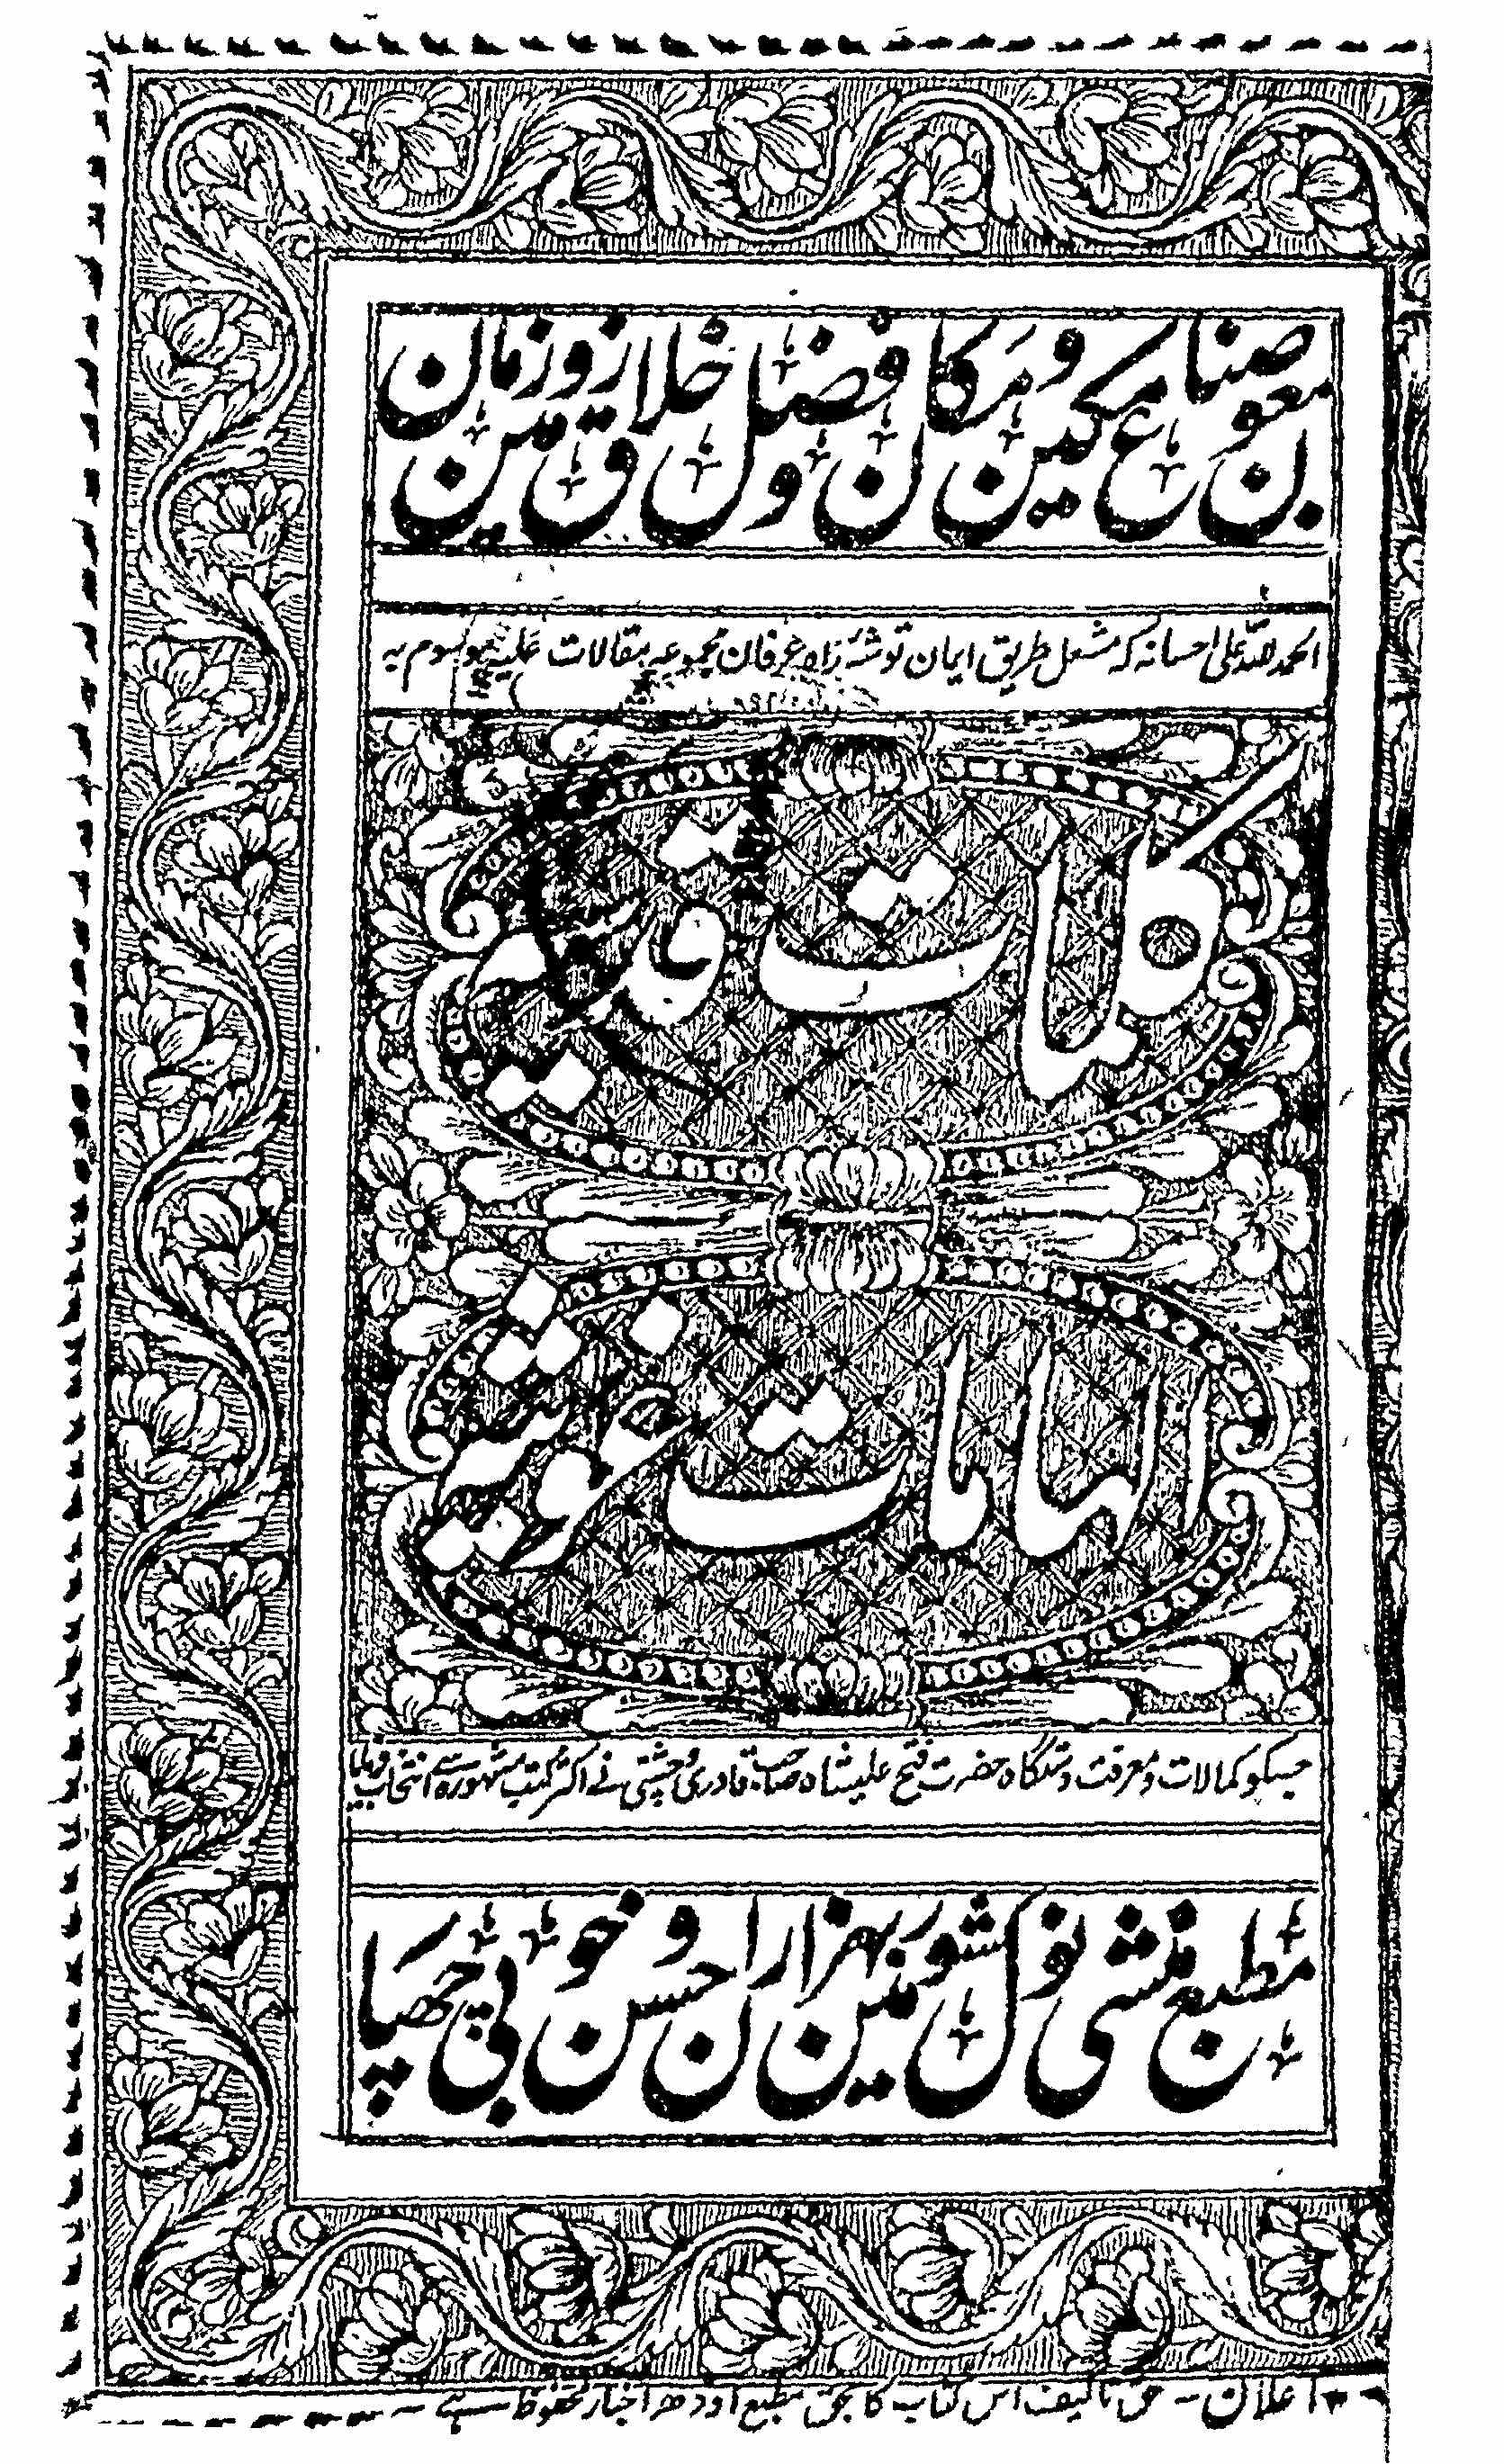 بعون صناع مکین و مکان و فضل خلاق زمین و زمان
الحمد للہ علی احسانہ کہ مشعل طریق ایمان توشۂ راہ عرفان مجموعہ مقالات علیہ موسوم بہ
کلمات قدسیہ
الہامات غوثیہ
جسکو کمالات و معرفت دستگاہ حضرت فتح علیشاہ صاحب قادری و چشتی نے اکثر کتب مشہورہ سے انتخاب فرمایا
مطبع منشی نولکشور میں ہزاران حسن و خوبی چھپا
اعلان ـ حق تالیف اس کتاب کا بحق مطبع اودھ اخبار محفوظ ہے